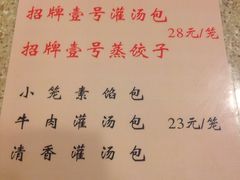 招牌壹号灌汤包
28元/笼
招牌壹号蒸饺子
小笼素馅包
牛肉灌汤包 23元/笼
清香灌汤包